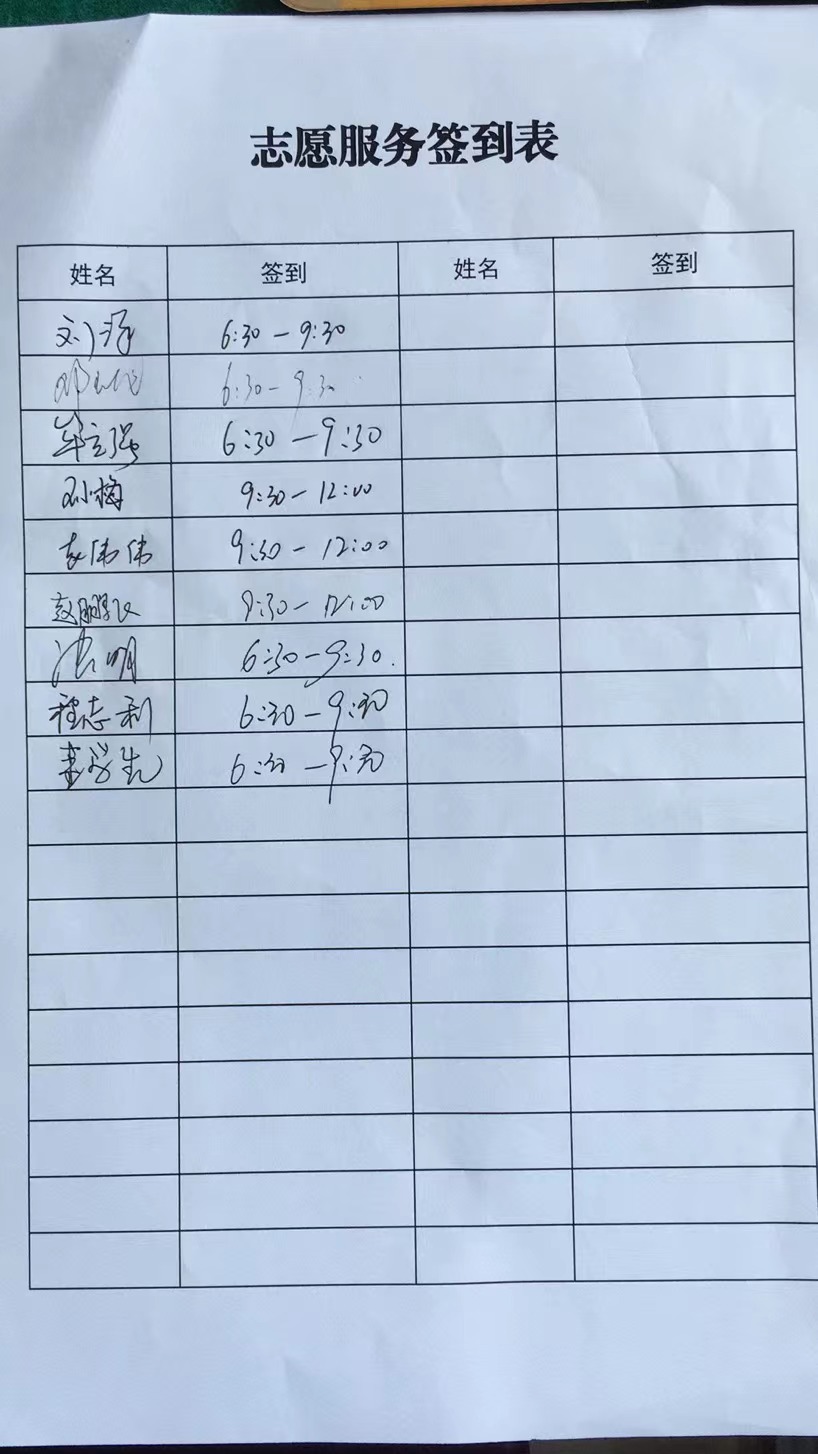 志愿服务签到表
姓名 签到 姓名 签到
刘 6:30 — 9:30
6:30 — 9:30
牟立强 6:30 — 9:30
孙梅 9:30 — 12:00
袁伟伟 9:30 — 12:00
赵鹏飞 9:30 — 12:00
明 6:30 — 9:30.
程志利 6:30 — 9:30
李学先 6:30 — 9:30